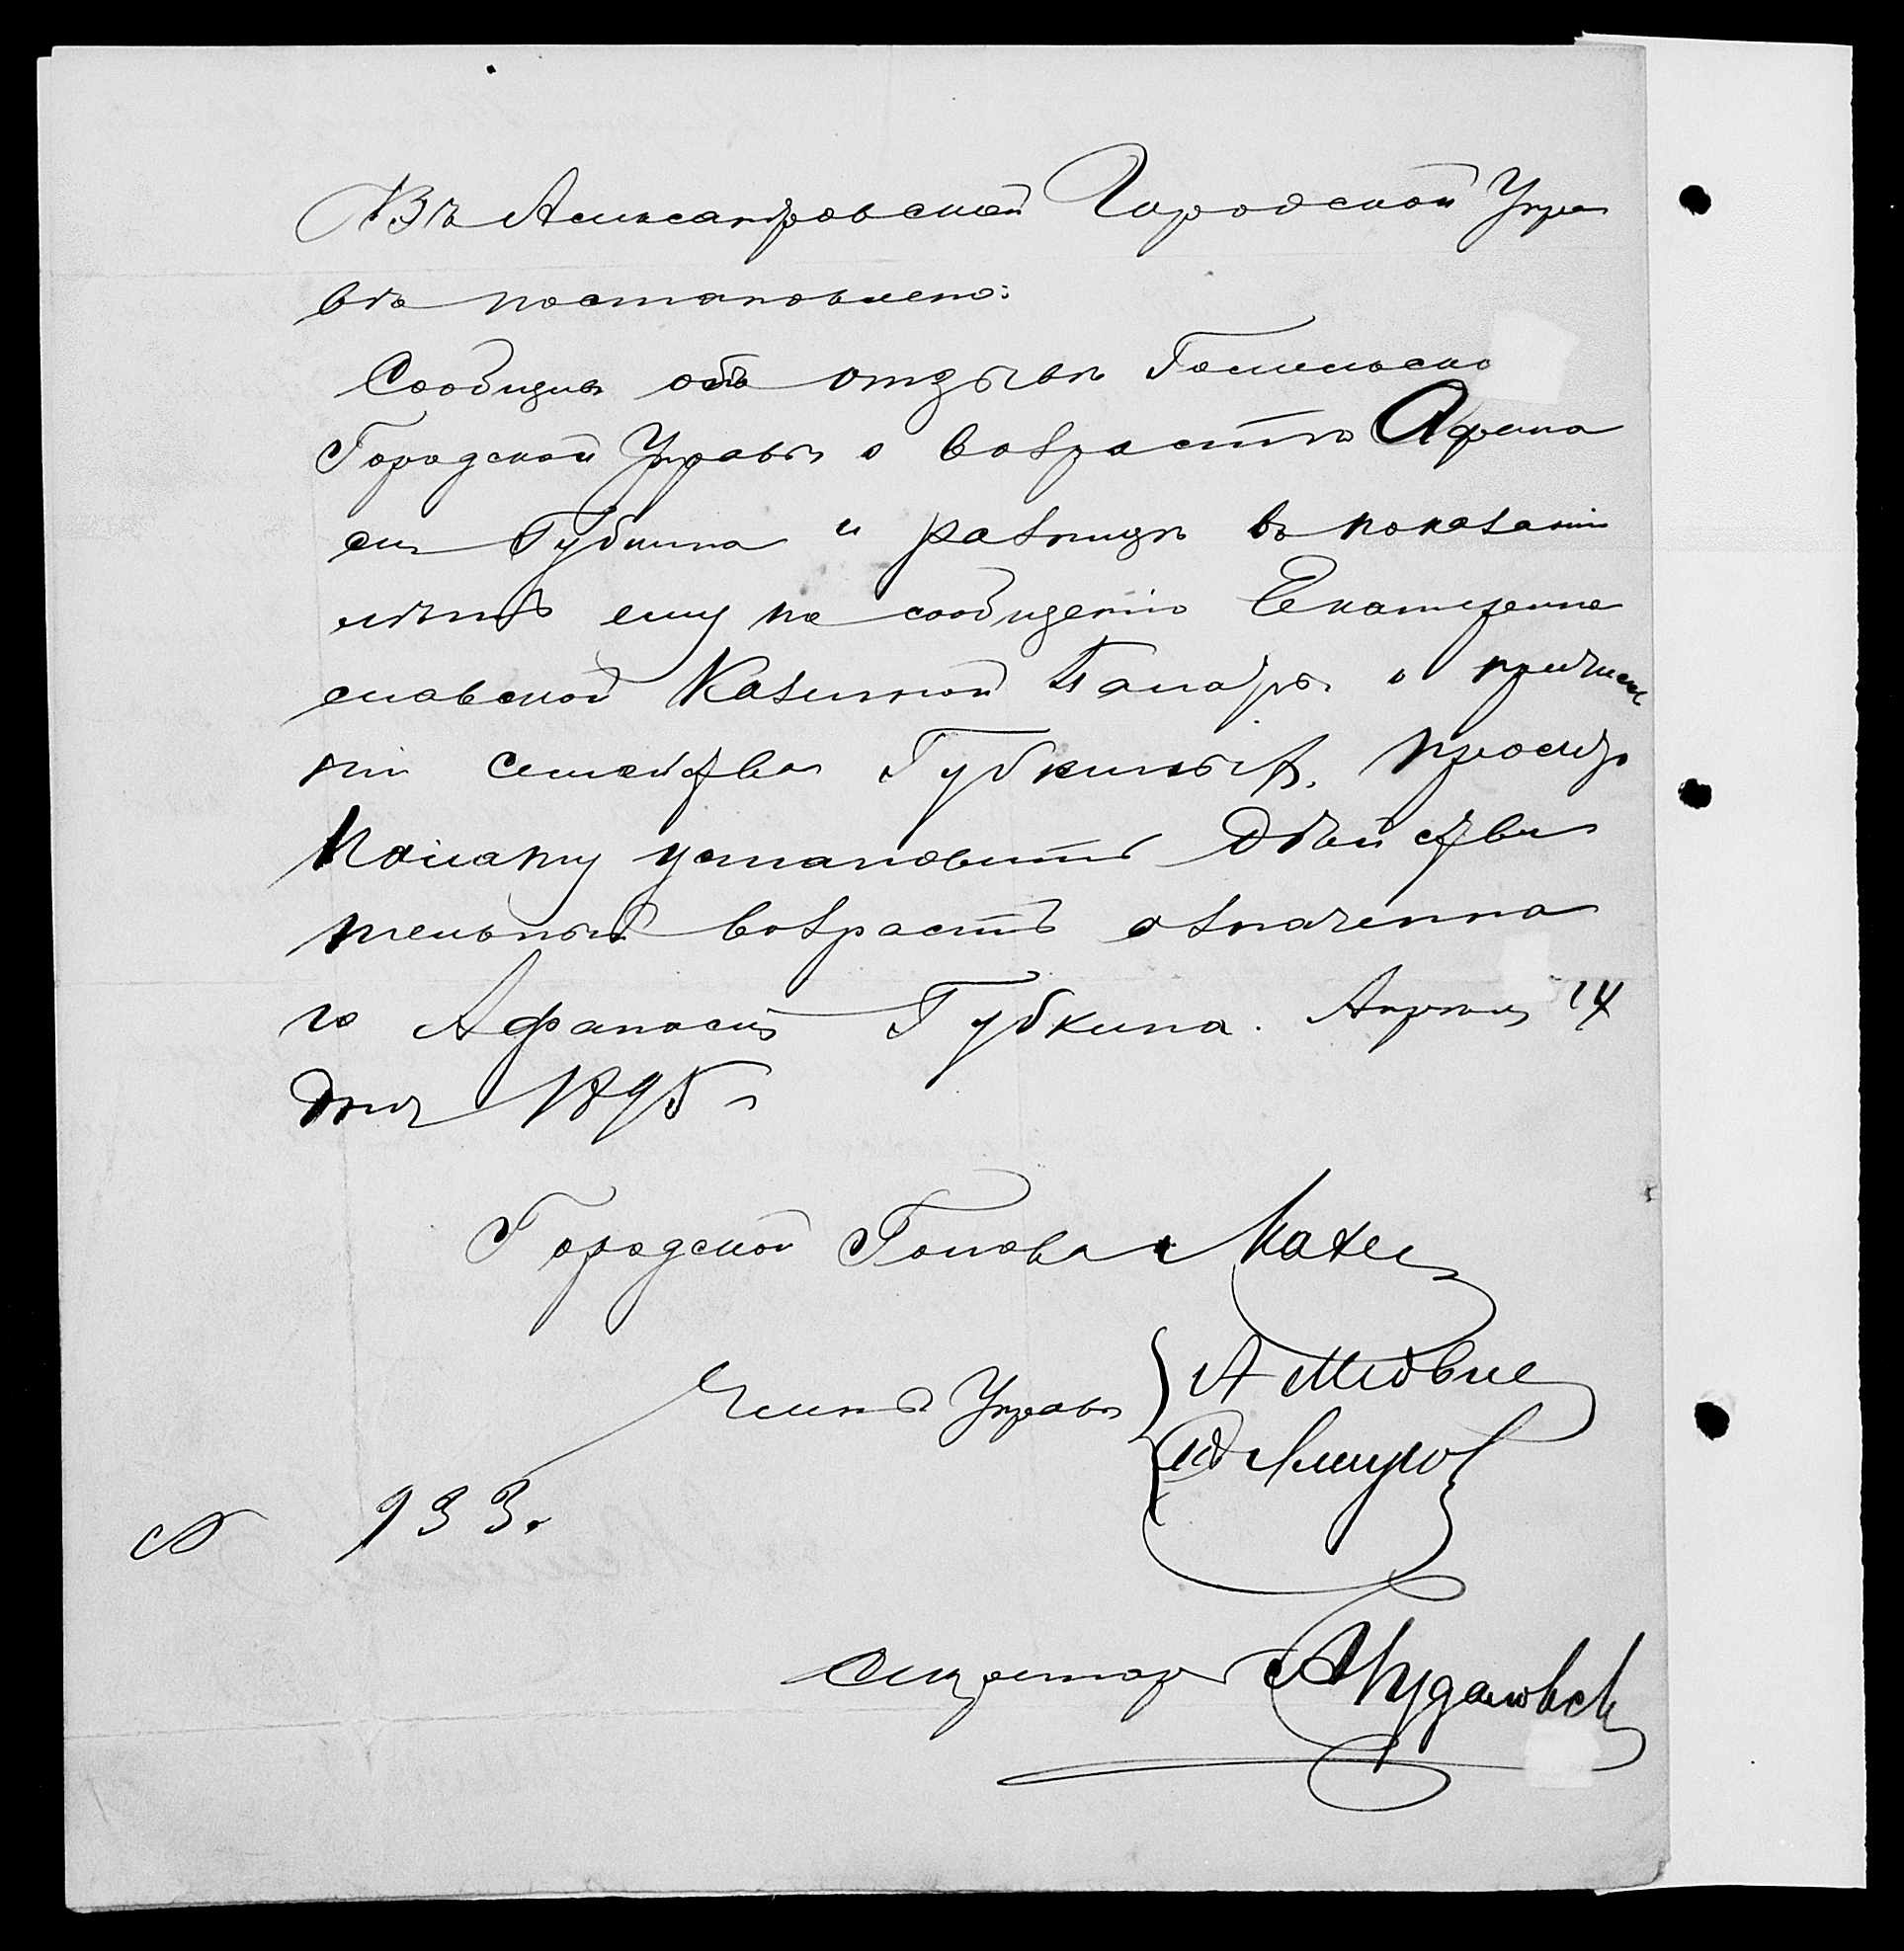 Въ Александровской Городской Упра
вѣ постановлено:
Сообщивъ объ отзывѣ Гомельско
Городской Управы о возрастѣ Афана
сія Губкина и разницѣ въ показаніи
лѣтъ ему по сообщенію Екатерино
славской Казенной Палаты о причисле
ніи семейства Губкиныхъ, просить
Палату установить дѣйстви
тельный возрастъ означенна
го Афанасія Губкина. Апрѣля 14
дня 1895 г
Городской Голова
Члены Управы
№ 933.
Секретарь